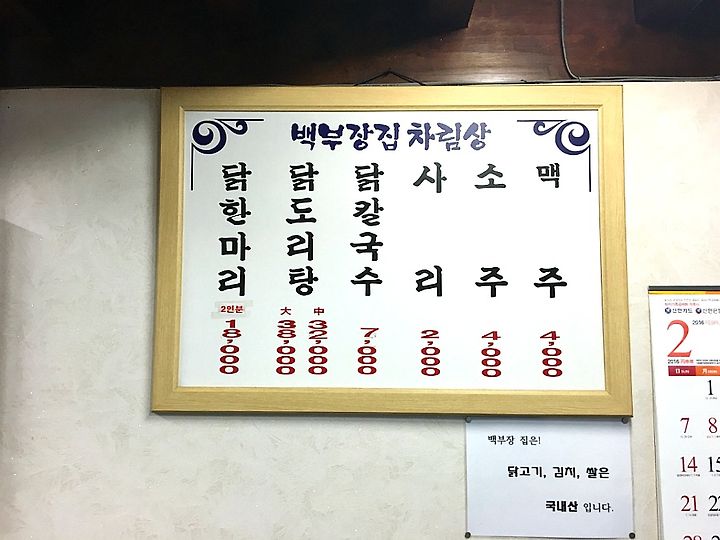 백부장집 차림상
닭한마리
2인분
18,000
닭도리탕
大 中
38,000 32,000
닭칼국수
7,000
사리
2,000
소주
4,000
맥주
4,000
백부장 집은!
닭고기, 김치, 쌀은
국내산 입니다.
신한카드 신한은
2 2016
2016
1
7 8
14 15
21 22
28